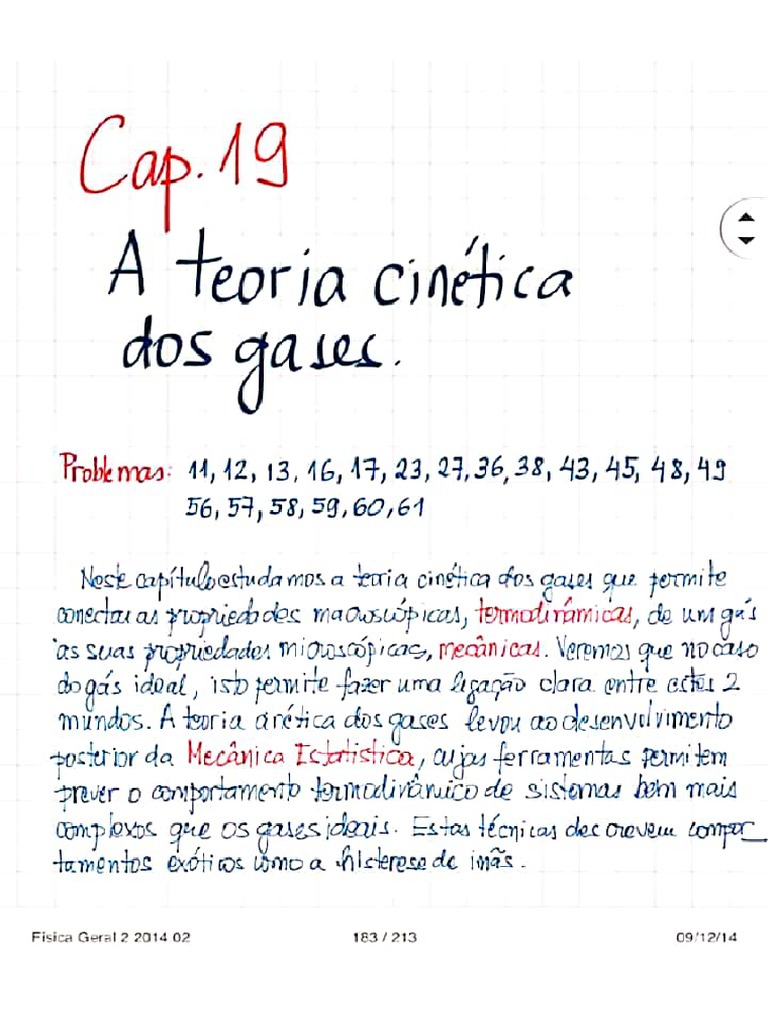 Cap. 19
A teoria cinética
dos gases.
Problemas: 11, 12, 13, 16, 17, 23, 27, 36, 38, 43, 45, 48, 49
56, 57, 58, 59, 60, 61
Neste capítulo estudamos a teoria cinética dos gases que permite
conectar as propriedades macroscópicas, termodinâmicas, de um gás
as suas propriedades microscópicas, mecânicas. Veremos que no caso
do gás ideal, isto permite fazer uma ligação clara entre estes 2
mundos. A teoria cinética dos gases levou ao desenvolvimento
posterior da Mecânica Estatística, cujas ferramentas permitem
prever o comportamento termodinâmico de sistemas bem mais
complexos que os gases ideais. Estas técnicas descrevem compor_
tamentos exóticos como a histerese de imãs.
Física Geral 2 2014 02 183 / 213 09/12/14